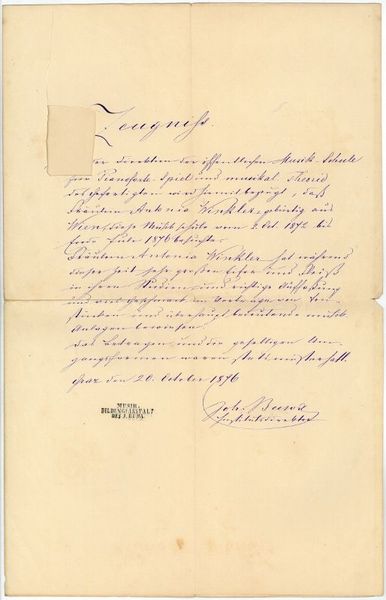 Zeugniss.
der Direktion der öffentlichen Musik-Schule
für Pianoforte-Spiel und musikal. Theorie
des Gefertigten wird hiemit bezeugt, daß
Fräulein Antonia Winkler, gebürtig aus
Wien diese Musikschule vom 1. Oct. 1872 bis
Ende Juli 1876 besuchte.
Fräulein Antonia Winkler hat während
dieser Zeit sehr großen Eifer und Fleiß
in ihren Studien und richtige Auffassung
und viel Geschmack im Vortrage von
stücken und überhaupt bedeutende musik.
Anlagen bewiesen.
Das Betragen und die geselligen Um-
gangsformen waren stets musterhaft.
Graz den 20. October 1876
Joh. Buwa
Institutsdirektor
MUSIK-
BILDUNGSANSTALT
DES J. BUWA.